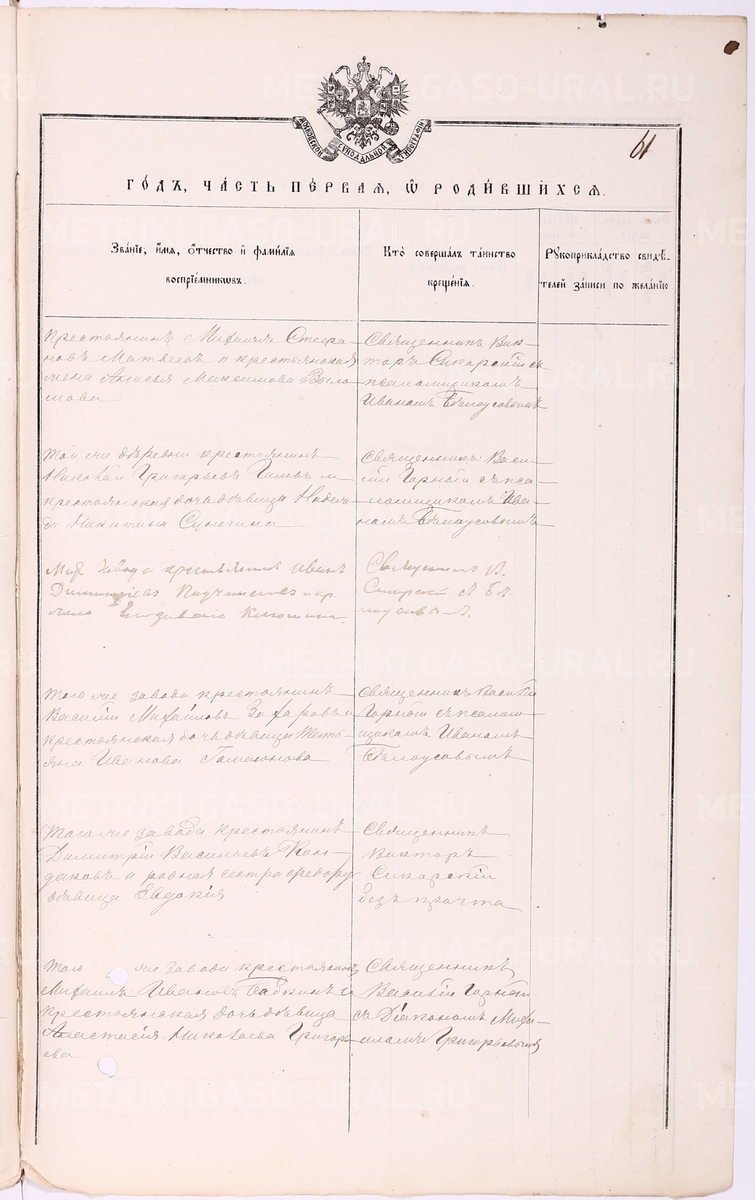 МОСКОВСКОЙ СѴНОДАЛЬНОЙ ТИПОГРАФІИ
61
ГО́ДЪ, ЧА́СТЬ ПЕ́РВАЯ, Ѽ РОДИ́ВШИХСЯ.
Зва́нїе, и҆́мя, ѻ҆́тчество и҆ фами́лїя
воспрїе́мниковъ.
Кто̀ соверша́лъ та́инство
креще́нїя.
Рукоприкла́дство свидѣ́-
телей за́писи по жела́нїю
Крестьянинъ Михаилъ Стефа-
новъ Матвеевъ и крестьянская
жена Анисья Максимова
Священникъ Вик-
торъ Сикорскій съ
псаломщикомъ
Иваномъ Бѣлоусовымъ
Той же деревни крестьянинъ
Николай Григорьевъ и
крестьянская дочь дѣвица Надеж-
да Никитина
Священникъ Васи-
лій Горный съ пса-
ломщикомъ Ива-
номъ Бѣлоусовымъ
завода крестьянинъ Иванъ
Димитріевъ и кр.
жена
Священникъ В.
Сикорскій
Того же завода крестьянинъ
Василій Михайловъ Захаровъ и
крестьянская дочь дѣвица Тать-
яна Иванова
Священникъ Василій
Горный съ псалом-
щикомъ Иваномъ
Бѣлоусовымъ
Того же завода крестьянинъ
Димитрій Васильевъ Кон-
даковъ и родная сестра
дѣвица Евдокія
Священникъ
Викторъ
Сикорскій
безъ причта
Того же завода крестьянинъ
Михаилъ Ивановъ Бабкинъ и
крестьянская дочь дѣвица
Анастасія Николаева Григорь-
ева
Священникъ
Василій Горный
съ Діакономъ Миха-
иломъ Григорьевымъ
METRIKI.GASO-URAL.RU